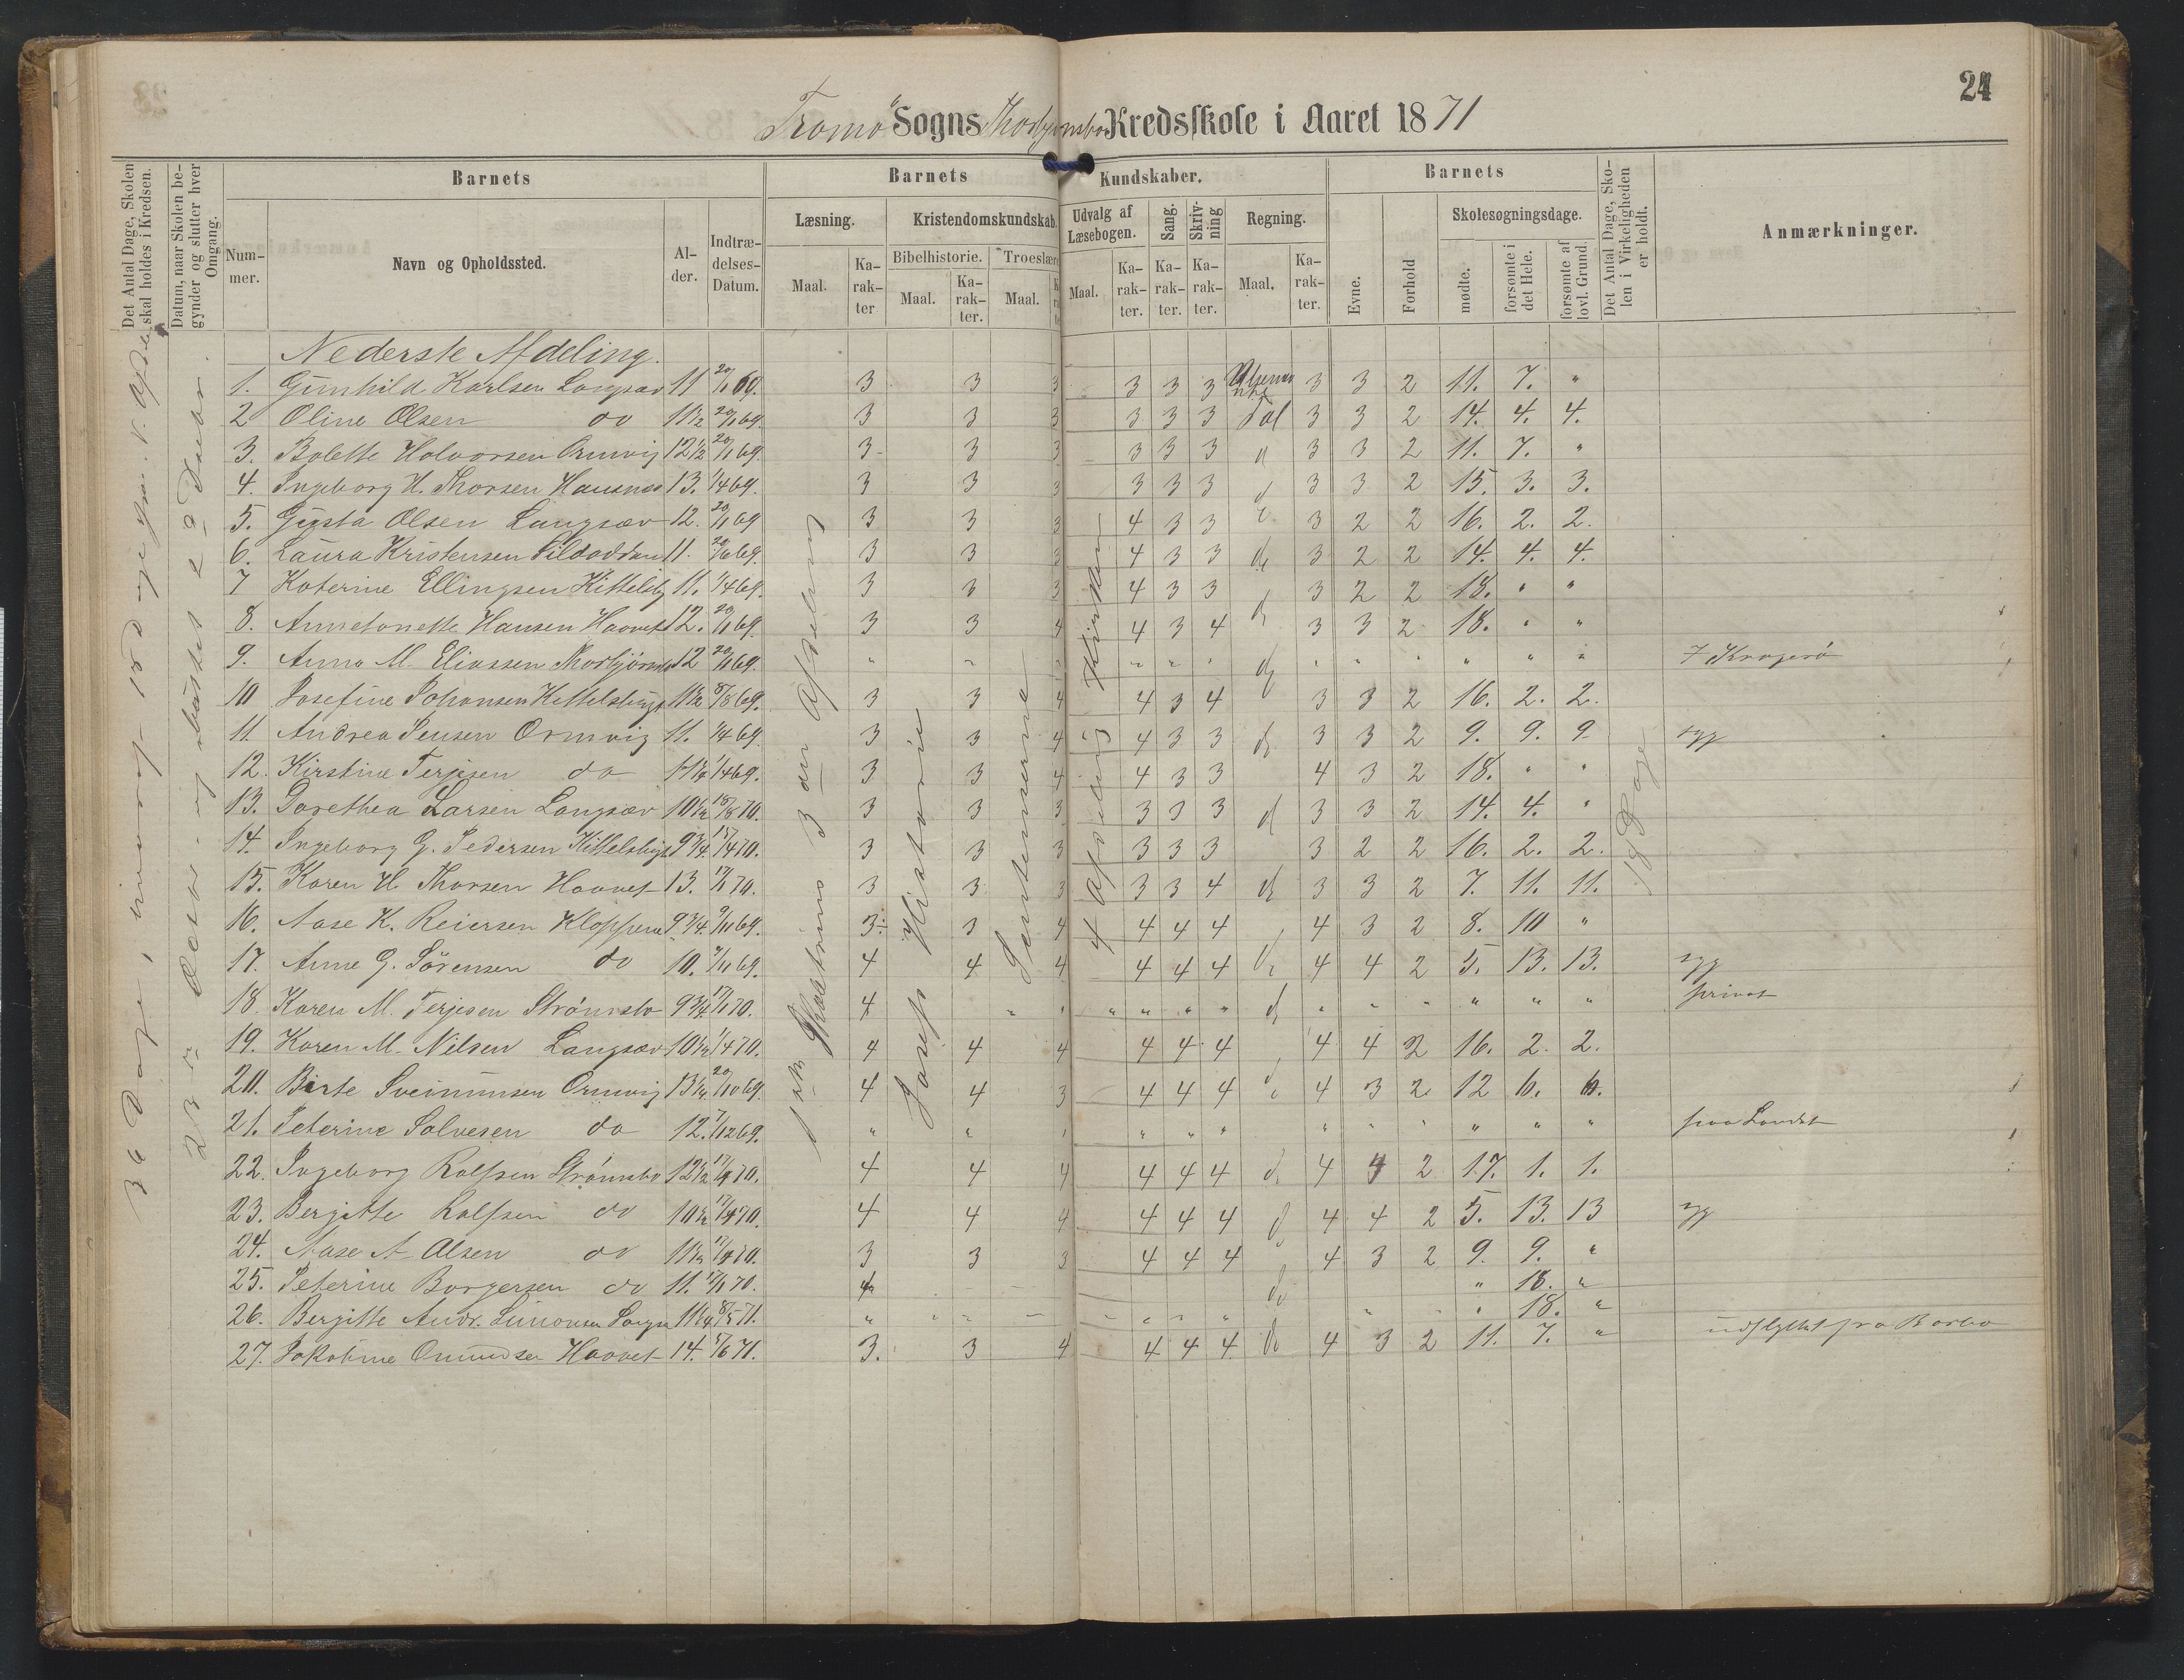 24
Tromø Sogns Thorbjønsbo Kredsskole i Aaret 1871
Det Antal Dage, Skolen skal holdes i Kredsen.
Datum, naar Skolen begynder og slutter hver Omgang.
Barnets
Barnets
Kundskaber.
Barnets
Det Antal Dage, Skolen i Virkeligheden er holdt.
Anmærkninger.
Nummer.
Navn og Opholdssted.
Alder.
Indtrædelses-Datum.
Læsning.
Kristendomskundskab.
Udvalg af Læsebogen.
Sang.
Skrivning
Regning.
Evne.
Forhold
Skolesøgningsdage.
Bibelhistorie.
Troeslære
Maal.
Karakter
Maal.
Karakter.
Maal.
Maal.
Karakter.
Karakter.
Karakter.
Maal.
Karakter.
mødte.
forsømte i det Hele.
forsømte af lovl. Grund.
36 Dage,
18 Dage
Josefs Historie
4 Afdeling
Nederste Afdeling.
1. Gunhild Karlsen Langsæv 11 20/11 69. 3 3 3 3 3 3 3 3 2 11. 7. "
2 Oline Olsen do 11½ 20/11 69. 3 3 3 3 3 3 Tal 3 3 2 14. 4. 4.
3. Bolette Halvorsen Ormvig 12½ 20/11 69. 3 3 3 3 3 3 3 3 2 11. 7. "
4. Ingeborg H. Thorsen Hausnes 13. 1/4 69. 3 3 3 3 3 3 3 3 2 15. 3. 3.
5. Gusta Olsen Langsæv 12. 20/11 69 3 3 3 4 3 3 3 2 2 16. 2. 2.
6. Laura Kristensen Sildodden 11. 3 3 3 4 3 3 do 3 2 2 14. 4. 4.
7 Katerine Ellingsen Kittelsb 11. 1/4 69. 3 3 3 4 3 3 3 2 2 18. " "
8. Annetonette Hansen Haavet 12. 20/11 69. 3 3 4 4 3 4 3 3 2 18. " "
9. Anna M. Eliassen Thorbjørnsb 12 20/11 69. " " " " " " " " " " " " I Kragerø
10 Josefine Johansen Kittelsbugt 11½ 8/8 69. 3 3 4 4 3 4 3 3 2 16. 2. 2.
11. Andrea Jensen Ormvig 11. 1/4 69. 3 3 4 4 3 3 do 3 3 2 9. 9. 9. syg
12. Kirstine Terjesen do 1/4 69. 3 3 4 4 3 3 4 3 2 18. " "
13. Dorethea Larsen Langsæv 10½ 3 3 3 3 3 3 3 3 2 14. 4. "
14. Ingeborg G. Pedersen Kittelsbugt 9¾ 3 3 3 3 3 3 3 2 2 16. 2. 2.
15. Karen H Thorsen Haavet 13. 3 3 3 3 3 4 do 3 3 2 7. 11. 11.
16. Aase K. Reiersen Kloppern 9¾ 3 3 4 4 4 4 4 3 2 8. 10 "
17. Anne G. Sørensen do 10. 4 4 4 4 4 4 do 4 4 2 5. 13. 13. syg
18. Karen M. Terjesen Strømsbo 9¾ 4 " " " " " do " " " " " " privat
19. Karen M. Nilsen Langsæv 10½ 1/4 70. 4 4 4 4 4 4 4 4 2 16. 2. 2.
20. Birte Sveinunsen Ormvig 13½ 20/10 69. 4 4 3 4 4 4 4 3 2 12 6. 6.
21. Peterine Salvesen do 12. " " " " " " " " " " " paa Landet
22. Ingeborg Rolfsen Strømsbo 12½ 4 4 4 4 4 4 do 4 4 2 17. 1. 1.
23. Bergitte Rolfsen do 10½ 4 4 4 4 4 4 4 4 2 5. 13. 13 syg
24. Aase A Olsen do 11½ 3 3 3 4 4 4 4 3 2 9. 9. "
25. Peterine Borgersen do 11. 4 do " 18. "
26. Bergitte Andr. Simonsen " " " " " " " 18. "
27. Jakobine Omundsen Haavet 14. 3. 3 4 4 4 4 do 4 3 2 11. 7. " indflyttet fra Barbo